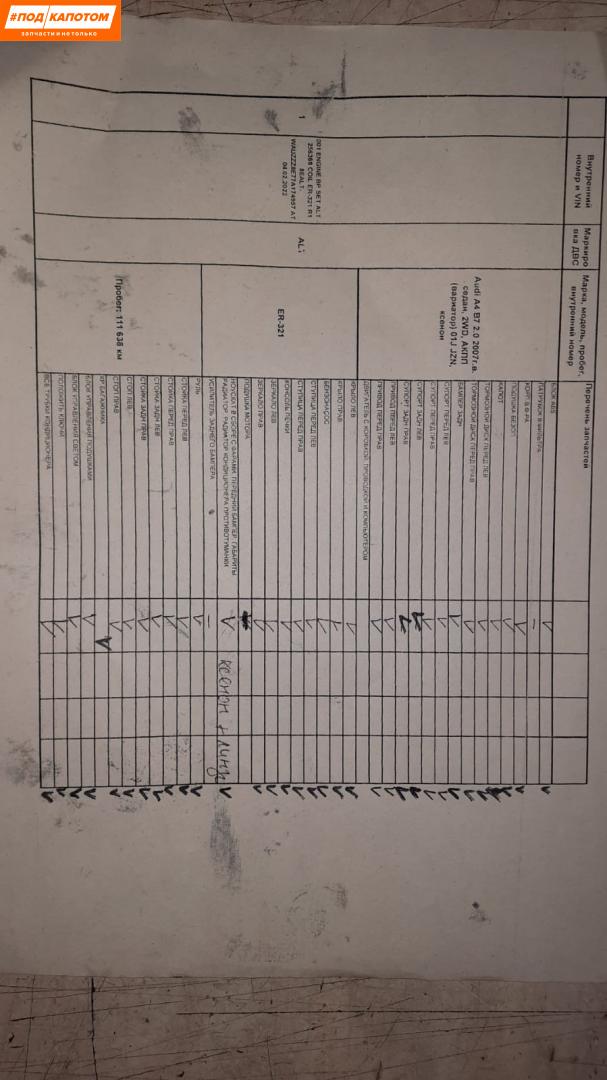 #ПОД КАПОТОМ
запчасти и не только
Внутренний номер и VIN
Маркиро вка ДВС
Марка, модель, пробег, внутренний номер
Перечень запчастей
1
001 ENGINE BP SET ALT
256268 COIL ER-321 R1
8EALT
04.02.2023
ALT
Audi A4 B7 2.0 2007г.в.
седан, 2WD, АКПП
(вариатор) 01J JZN,
ксенон
ER-321
Пробег: 111 638 км
БЛОК ABS
ПАТРУБОК Ж ФИЛЬТРА
КОРП. В.Ф-РА
ПОДУШКА БЕЗОП
КАПОТ
ТОРМОЗНОЙ ДИСК ПЕРЕД ЛЕВ
ТОРМОЗНОЙ ДИСК ПЕРЕД ПРАВ
БАМПЕР ЗАДН
СУПОРТ ПЕРЕД ЛЕВ
СУПОРТ ПЕРЕД ПРАВ
СУПОРТ ЗАДН ЛЕВ
СУПОРТ ЗАДН ПРАВ
ПРИВОД ПЕРЕД ЛЕВ
ПРИВОД ПЕРЕД ПРАВ
ДВИГАТЕЛЬ С КОРОБКОЙ, ПРОВОДКОЙ И КОМПЬЮТЕРОМ
КРЫЛО ЛЕВ
КРЫЛО ПРАВ
БЕНЗОНАСОС
СТУПИЦА ПЕРЕД ЛЕВ
СТУПИЦА ПЕРЕД ПРАВ
КОНСОЛЬ ПЕЧКИ
ЗЕРКАЛО ЛЕВ
ЗЕРКАЛО ПРАВ
ПОДУШКА МОТОРА
НОУСКАТ В СБОРЕ С ФАРАМИ, ПЕРЕДНИЙ БАМПЕР, ГАБАРИТЫ
РАДИАТОР, РАДИАТОР КОНДИЦИОНЕРА, ПРОТИВОТУМАНКИ
ксенон + линз
УСИЛИТЕЛЬ ЗАДНЕГО БАМПЕРА
РУЛЬ
СТОЙКА ПЕРЕД ЛЕВ
СТОЙКА ПЕРЕД ПРАВ
СТОЙКА ЗАДН ЛЕВ
СТОЙКА ЗАДН ПРАВ
СТОП ЛЕВ
СТОП ПРАВ
КР БАГАЖНИКА
БЛОК УПРАВЛЕНИЯ ПОДУШКАМИ
БЛОК УПРАВЛЕНИЯ СВЕТОМ
ПОЛОЖИТЬ КЛЮЧИ
ВСЕ ТРУБКИ КОНДИЦИОНЕРА